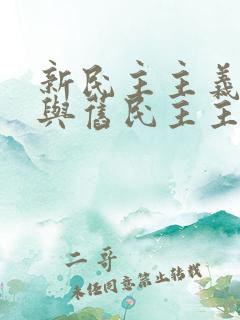 新民主主義
與舊民主主
二哥
未经同意禁止转载